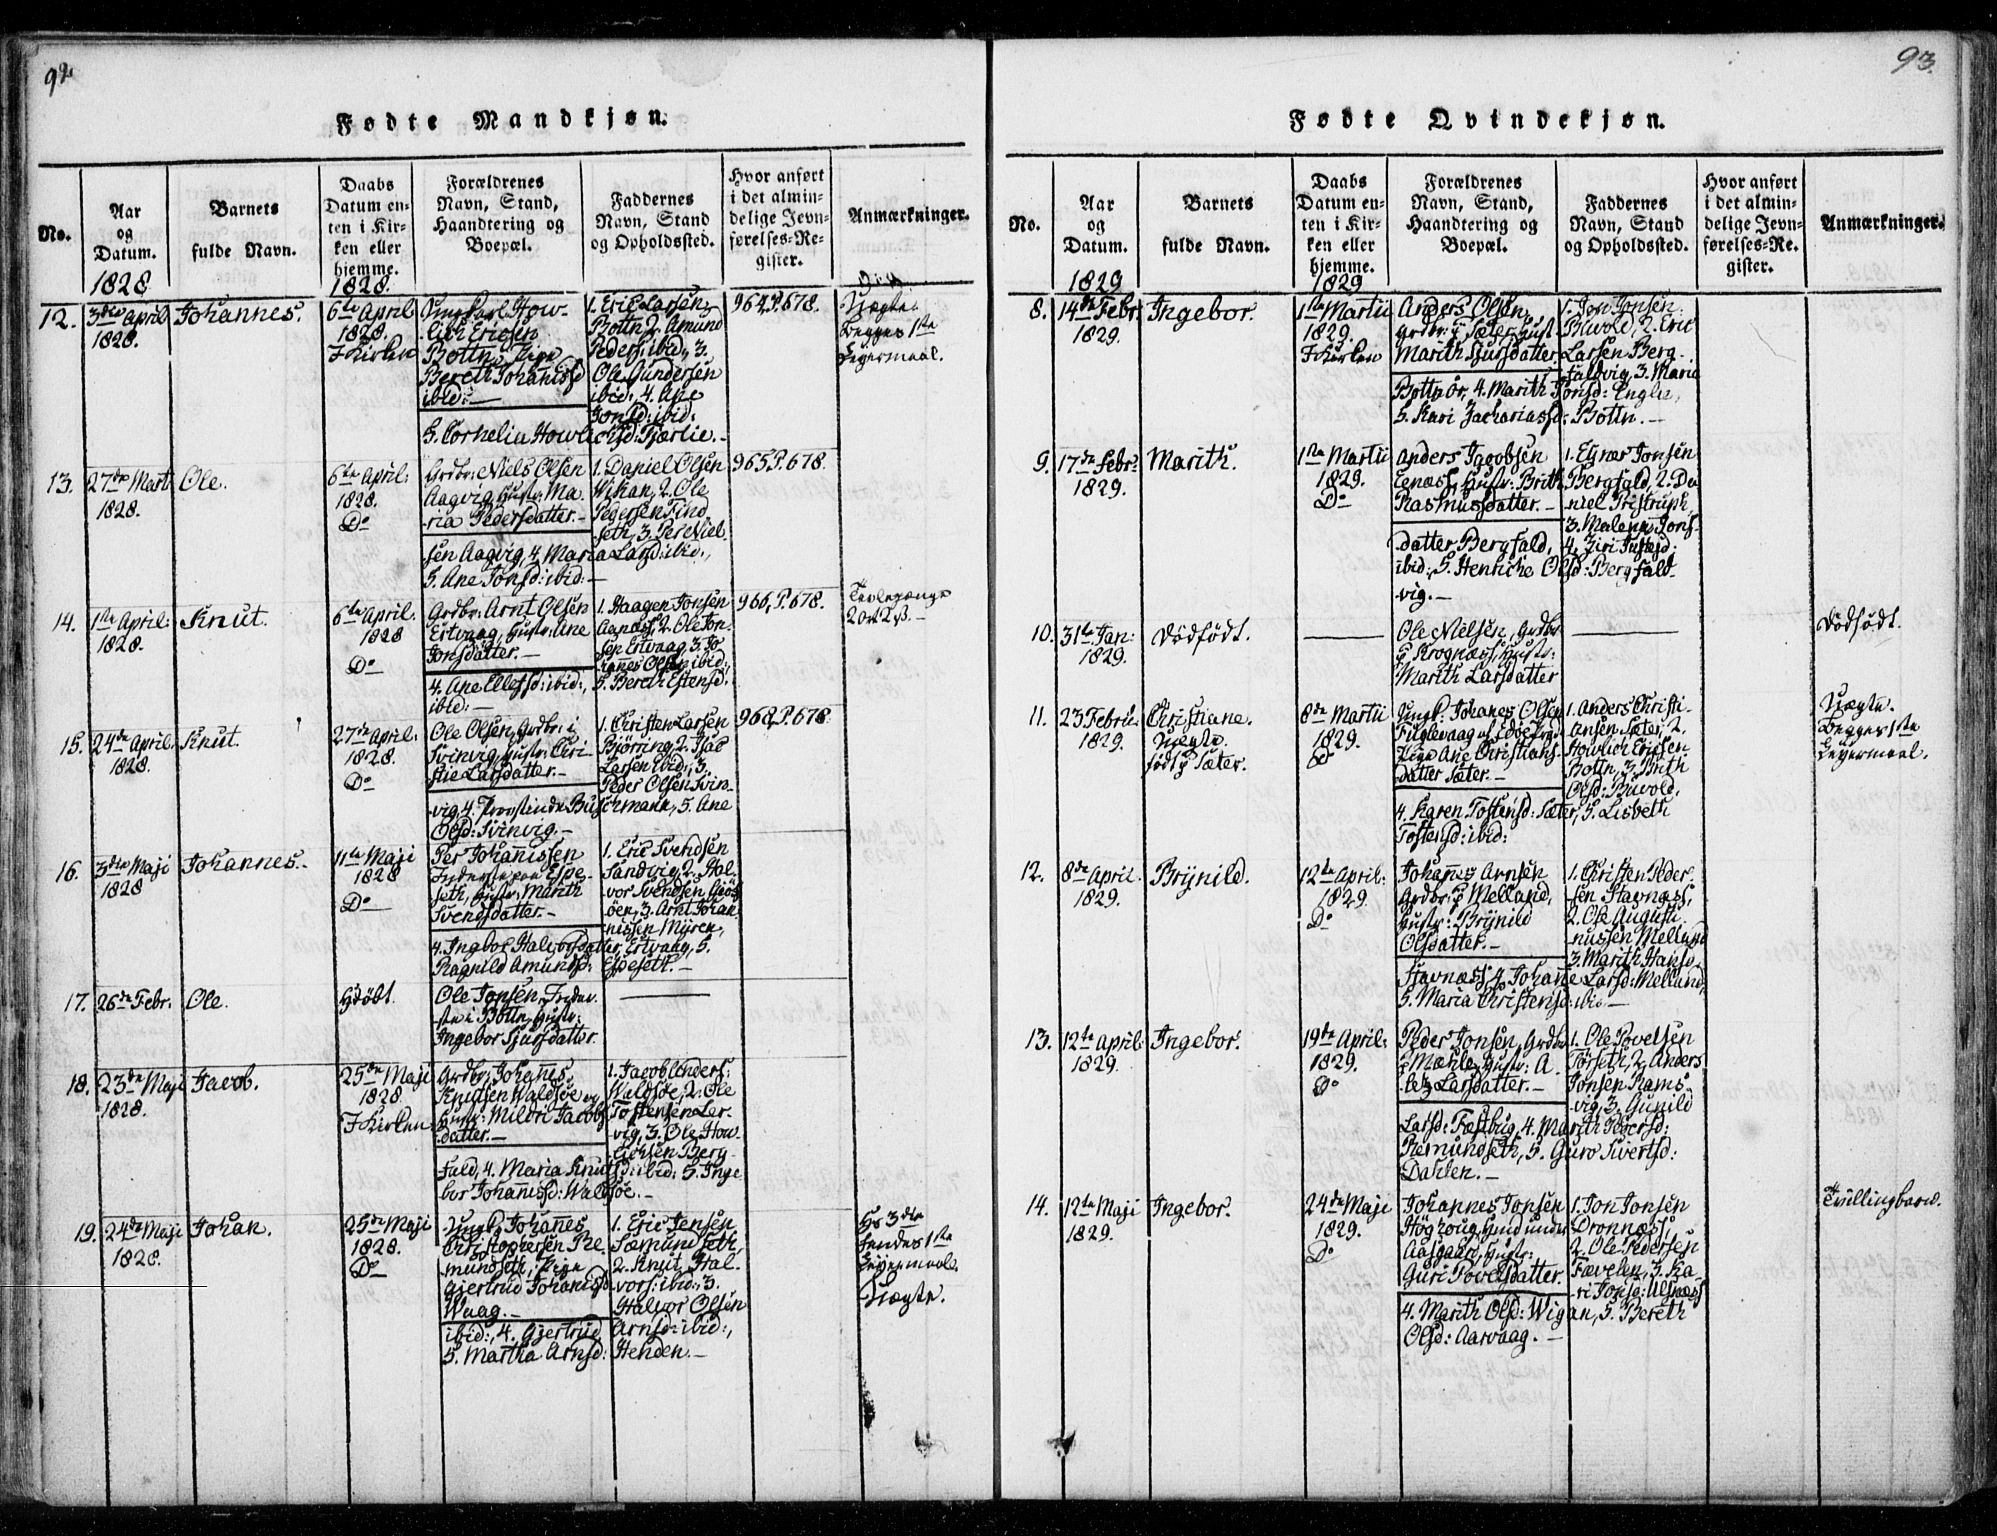 92
Fødte Mandkjøn.
No.
Aar
og
Datum.
1828
Barnets
fulde Navn.
Daabs
Datum en-
ten i Kir-
ken eller
hjemme.
1828
Forældrenes
Navn, Stand,
Haandtering og
Boepæl.
Faddernes
Navn, Stand
og Opholdssted.
Hvor anført
i det almin-
delige Jevn-
førelses-Re-
gister.
Anmærkninger.
12.
3die April
1828.
Johannes.
6te April
1828.
I Kirken
Ungkarl How-
lich Ericsen
Bottn, Pige
Bereth Johanisd
ibid: —
1. Eric Larsen,
Bottn, 2. Amund
Peders: ibid:, 3.
Ole Gundersen
ibid:, 4. Ane
Jonsd: ibid:
5. Cornelia Howlichsd: Tjærlie. —
964, P. 678.
Uægte.
Begges 1ste
Leiermaal.
13.
27de Marts
1828.
Ole.
6te April:
1828.
Do
Grdbr: Niels Olsen
Aagvig, Hustr: Ma-
ria Pedersdatter. —
1. Daniel Olsen
Wikan, 2. Ole
Pedersen Find
seth, 3. Per Niel-
sen Aagvig, 4. Maria Larsd: ibid:,
5. Ane Jonsd: ibid: —
965, P. 678.
14.
1ste April:
1828.
Knut.
6te April.
1828
Do
Grdbr: Arnt Olsen
Ertvaag, Hustr: Ane
Jonsdatter. —
1. Haagen Jonsen
Aanæss, 2. Ole Jon-
sen Ertvaag, 3. Jo-
hanes Olsen ibid:,
4. Ane Ellefsd: ibid:, 5. Bereth Estensd:
ibid: —
966, P. 678.
15.
24de April.
1828.
Knut.
27de April:
1828.
Do
Ole Olsen, Grdbr: i
Svinvig, Hustr: Chri-
stie Larsdatter. —
1. Christen Larsen
Bjørning, 2. Isac
Larsen Ibid:, 3.
Peder Olsen Svin-
vig, 4. Buschmann, 5. Ane
Olsd: Svinvig. —
968, P. 678
16.
3die Maji
1828
Johannes.
11te Maji
1828
Do
Per Johannissen
Inderste paa Espe-
seth, Hustr: Marith
Svendsdatter. —
1. Eric Svendsen
Sandvig, 2. Hal-
vor Svendsen Gjøs-
øen, 3. Arnt Johan-
nissen Myren,
4. Ingbor Halvorsdatter, Ertvaag, 5.
Ragnild Amundsd: Espeseth. —
17.
26de Febr.
Ole.
Gdøbt.
Ole Jonsen, Inder-
ste i Bottn, Hustr:
Ingebor Sjursdatter.
18.
23de Maji
1828.
Jacob.
25de Maji
1828
I Kirken
Grdbr: Johanes
Knutsen Waldsøe og
Hustr: Mildri Jacobs
datter. —
1. Jacob Anders:
Waldsøe, 2. Ole
Tostensen Ler-
vig, 3. Ole How-
lichsen Berg-
fald, 4. Maria Knutsd: ibid: 5. Inge
bor Johannissd: Waldsøe. —
19.
24de Maji
1828.
Johan.
25de Maji
1828.
Do
Ungk. Johanes
Christophersen Re-
mundseth, Pige
Gjertrud Johanisd
Waag. —
1. Eric Jensen
Sæmundseth,
2. Knut Hal-
vors: ibid:, 3.
Halvor Olsen
ibid:, 4. Gjertrud Arnsd: ibid:,
5. Martha Arnsd: Henden. —
Hs 3die
hendes 1ste
Leiermaal.
Uægte.
93.
Fødte Qvindekjøn.
No.
Aar
og
Datum.
1829
Barnets
fulde Navn.
Daabs
Datum en-
ten i Kir-
ken eller
hjemme.
1829
Forældrenes
Navn, Stand,
Haandtering og
Boepæl.
Faddernes
Navn, Stand
og Opholdssted.
Hvor anført
i det almin-
delige Jevn-
førelses-Re-
gister.
Anmærkninger.
8.
14de Febr:
1829.
Ingebor.
1ste Martii
1829.
I Kirken
Anders Olsen
Grdbr: i Sæter, Hust:
Marith Sjursdatter
1. Jon Jonsen
Buvold, 2. Eric
Larsen Berg-
faldvig, 3. Maria
Bottnør, 4. Marith Jonsd: Englie,
5. Kari Zachariassd: Bottn. —
9.
17de Febr:
1829.
Marith.
1ste Martii
1829.
Do
Anders Jacobsen
Hustr: Brith
Rasmusdatter. —
1. Ejnar Jonsen
Bergfald, 2. Da
niel Tristrup,
3. Malena Jons-
datter Bergfald, 4. Ziri
ibid:, 5. Henriche Olsd: Bergfald-
vig. —
10.
31te Jan:
1829.
Dødfødt.
Ole Nielsen, Grdbr
i Krognæss, Hustr:
Marith Larsdatter
Dødfødt.
11.
23 Februr:
1829.
Christiane.
Uægte.
født i Sæter.
8de Martii
1829.
Do
Ungk: Johanes Olsen
Fuglevaag af Edøe
Pige Ane Christians-
datter Sæter. —
1. Anders Christi-
ansen Sæter, 2.
Howlich Ericsen
Bottn, 3. Brith
Olsd: Buvold,
4. Karen Tostensd: Sæter, 5. Lisbeth
Tostensd: ibid:
Uægte.
Begges 1ste
Leiermaal.
12.
8de April.
1829.
Brynild.
12te April:
1829.
Do
Johannes Arnsen
Grdbr: i Melland,
Hustr: Brynild
Olsdatter. —
1. Christen Peder-
sen Stavnæss,
2. Ole Augusti-
nussen Melland
3. Marith Hansd.
Stavnæss, 4. Johanne Larsd: Melland,
5. Maria Christensd: ibid: —
13.
12te April
1829.
Ingebor.
19de April:
1829.
Do
Peder Jonsen, Grdbr
i Mæhle, Hustr: A-
let Larsdatter. —
1. Ole Povelsen
Tørseth, 2. Anders
Jonsen Rams-
vig, 3. Gunild
Larsd: Fæstbug, 4. Marith Pedersd:
Remundseth, 5. Guro Sivertsd:
Dahlen. —
14.
12te Maji
1829.
Ingebor.
24de Maji
1829.
Do
Johannes Jonsen
Høghoug, Hmd under
Aasgaard, Hustr:
Guri Povelsdatter.
1. Jon Jonsen
Dronnæss,
2. Ole Pedersen
Fævelen, 3. Ka-
ri Jonsd: Ulsnæss
4. Marith Olsd: Wigan, 5. Bereth
Olsd: Aarvaag. —
Tvillingbarn.